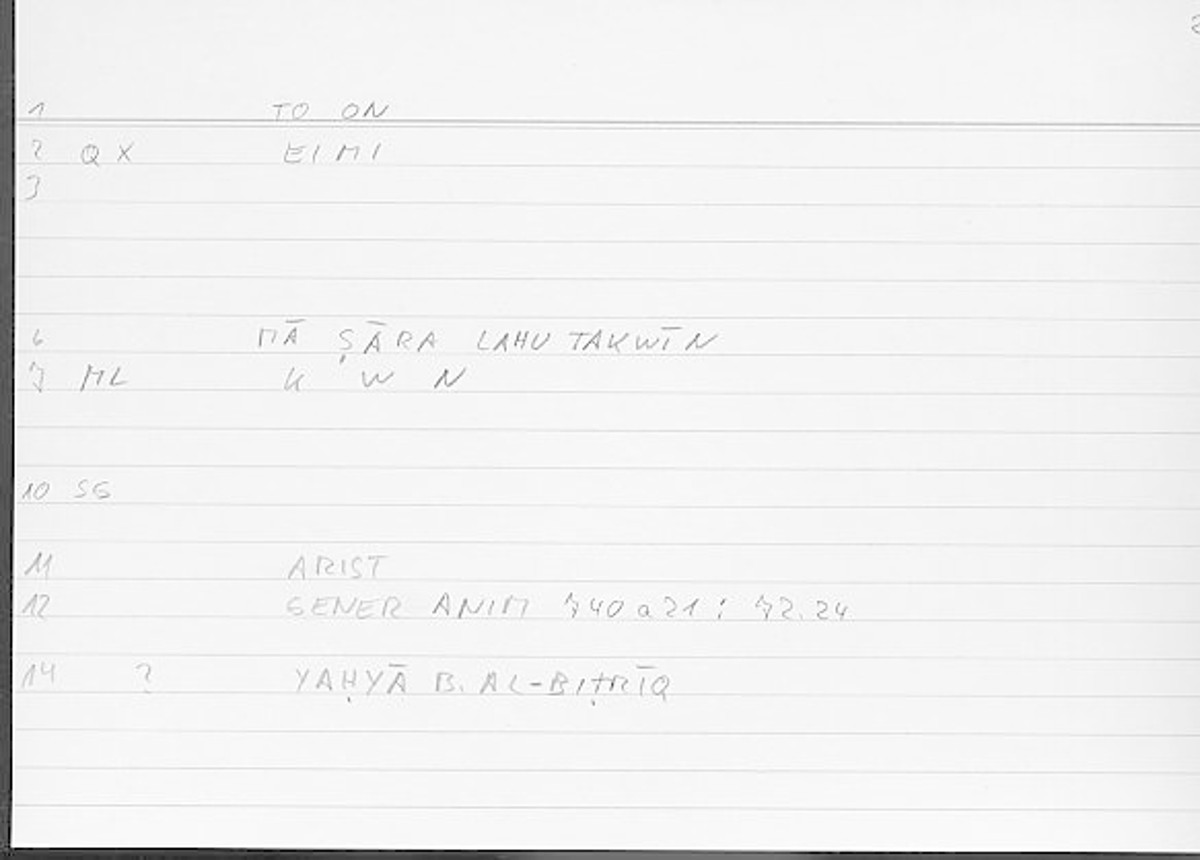 1 TO ON
2 QX EIMI
3
6 MĀ ṢĀRA LAHU TAKWĪN
7 ML K W N
10 SG
11 ARIST
12 GENER ANIM 740a21 : 72.24
14 ? YAḤYĀ B. AL-BIṬRĪQ